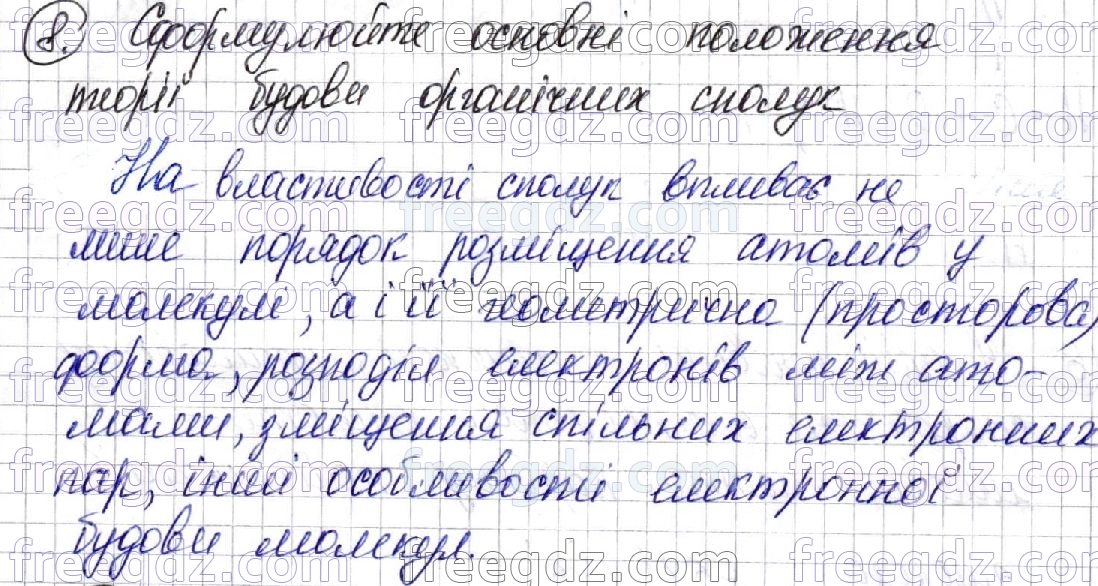 8. Сформулюйте основні положення
теорії будови органічних сполук
На властивості сполук впливає не
лише порядок розміщення атомів у
молекулі, а і її геометрична (просторова)
форма, розподіл електронів між ато-
мами, зміщення спільних електронних
пар, інші особливості електронної
будови молекул.
freegdz.com